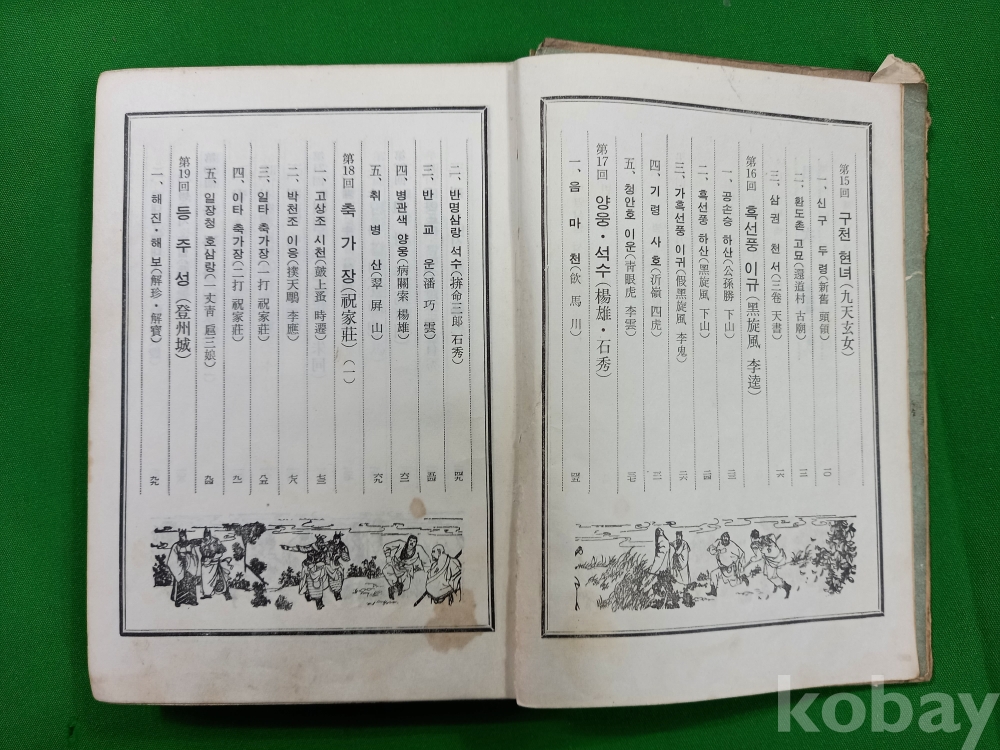 第15回 구천 현녀(九天玄女)
一、신구 두령(新舊 頭領) 一〇
二、환도촌 고묘(還道村 古廟) 一三
三、삼권 천서(三卷 天書) 一六
第16回 흑선풍 이규(黑旋風 李逵)
一、공손승 하산(公孫勝 下山)
二、흑선풍 하산(黑旋風 下山) 二四
三、가흑선풍 이귀(假黑旋風 李鬼) 二六
四、기령 사호(沂嶺 四虎)
五、청안호 이운(靑眼虎 李雲) 三七
第17回 양웅·석수(楊雄·石秀)
一、음마천(飮馬川) 四五
二、반명삼랑 석수(拚命三郞 石秀) 四九
三、반교운(潘巧雲) 五四
四、병관색 양웅(病關索 楊雄) 六二
五、취병산(翠屛山) 六九
第18回 축가장(祝家莊)(一)
一、고상조 시천(鼓上蚤 時遷) 七三
二、박천조 이응(撲天鵰 李應) 七八
三、일타 축가장(一打 祝家莊) 八五
四、이타 축가장(二打 祝家莊) 九一
五、일장청 호삼랑(一丈靑 扈三娘) 九四
第19回 등주성(登州城)
一、해진·해보(解珍·解寶) 九九
kobay